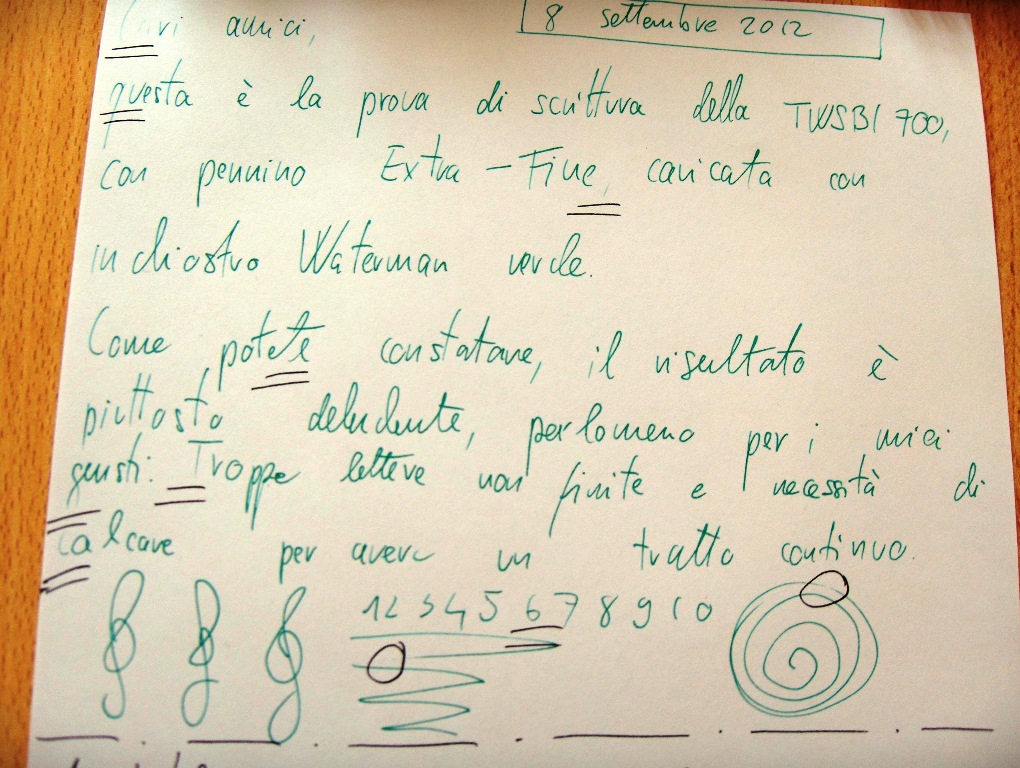 Cari amici,
8 settembre 2012
questa è la prova di scrittura della TWSBI 700,
con pennino Extra-Fine, caricata con
inchiostro Waterman verde.
Come potete constatare, il risultato è
piuttosto deludente, perlomeno per i miei
gusti. Troppe lettere non finite e necessità di
calcare per avere un tratto continuo.
1 2 3 4 5 6 7 8 9 10